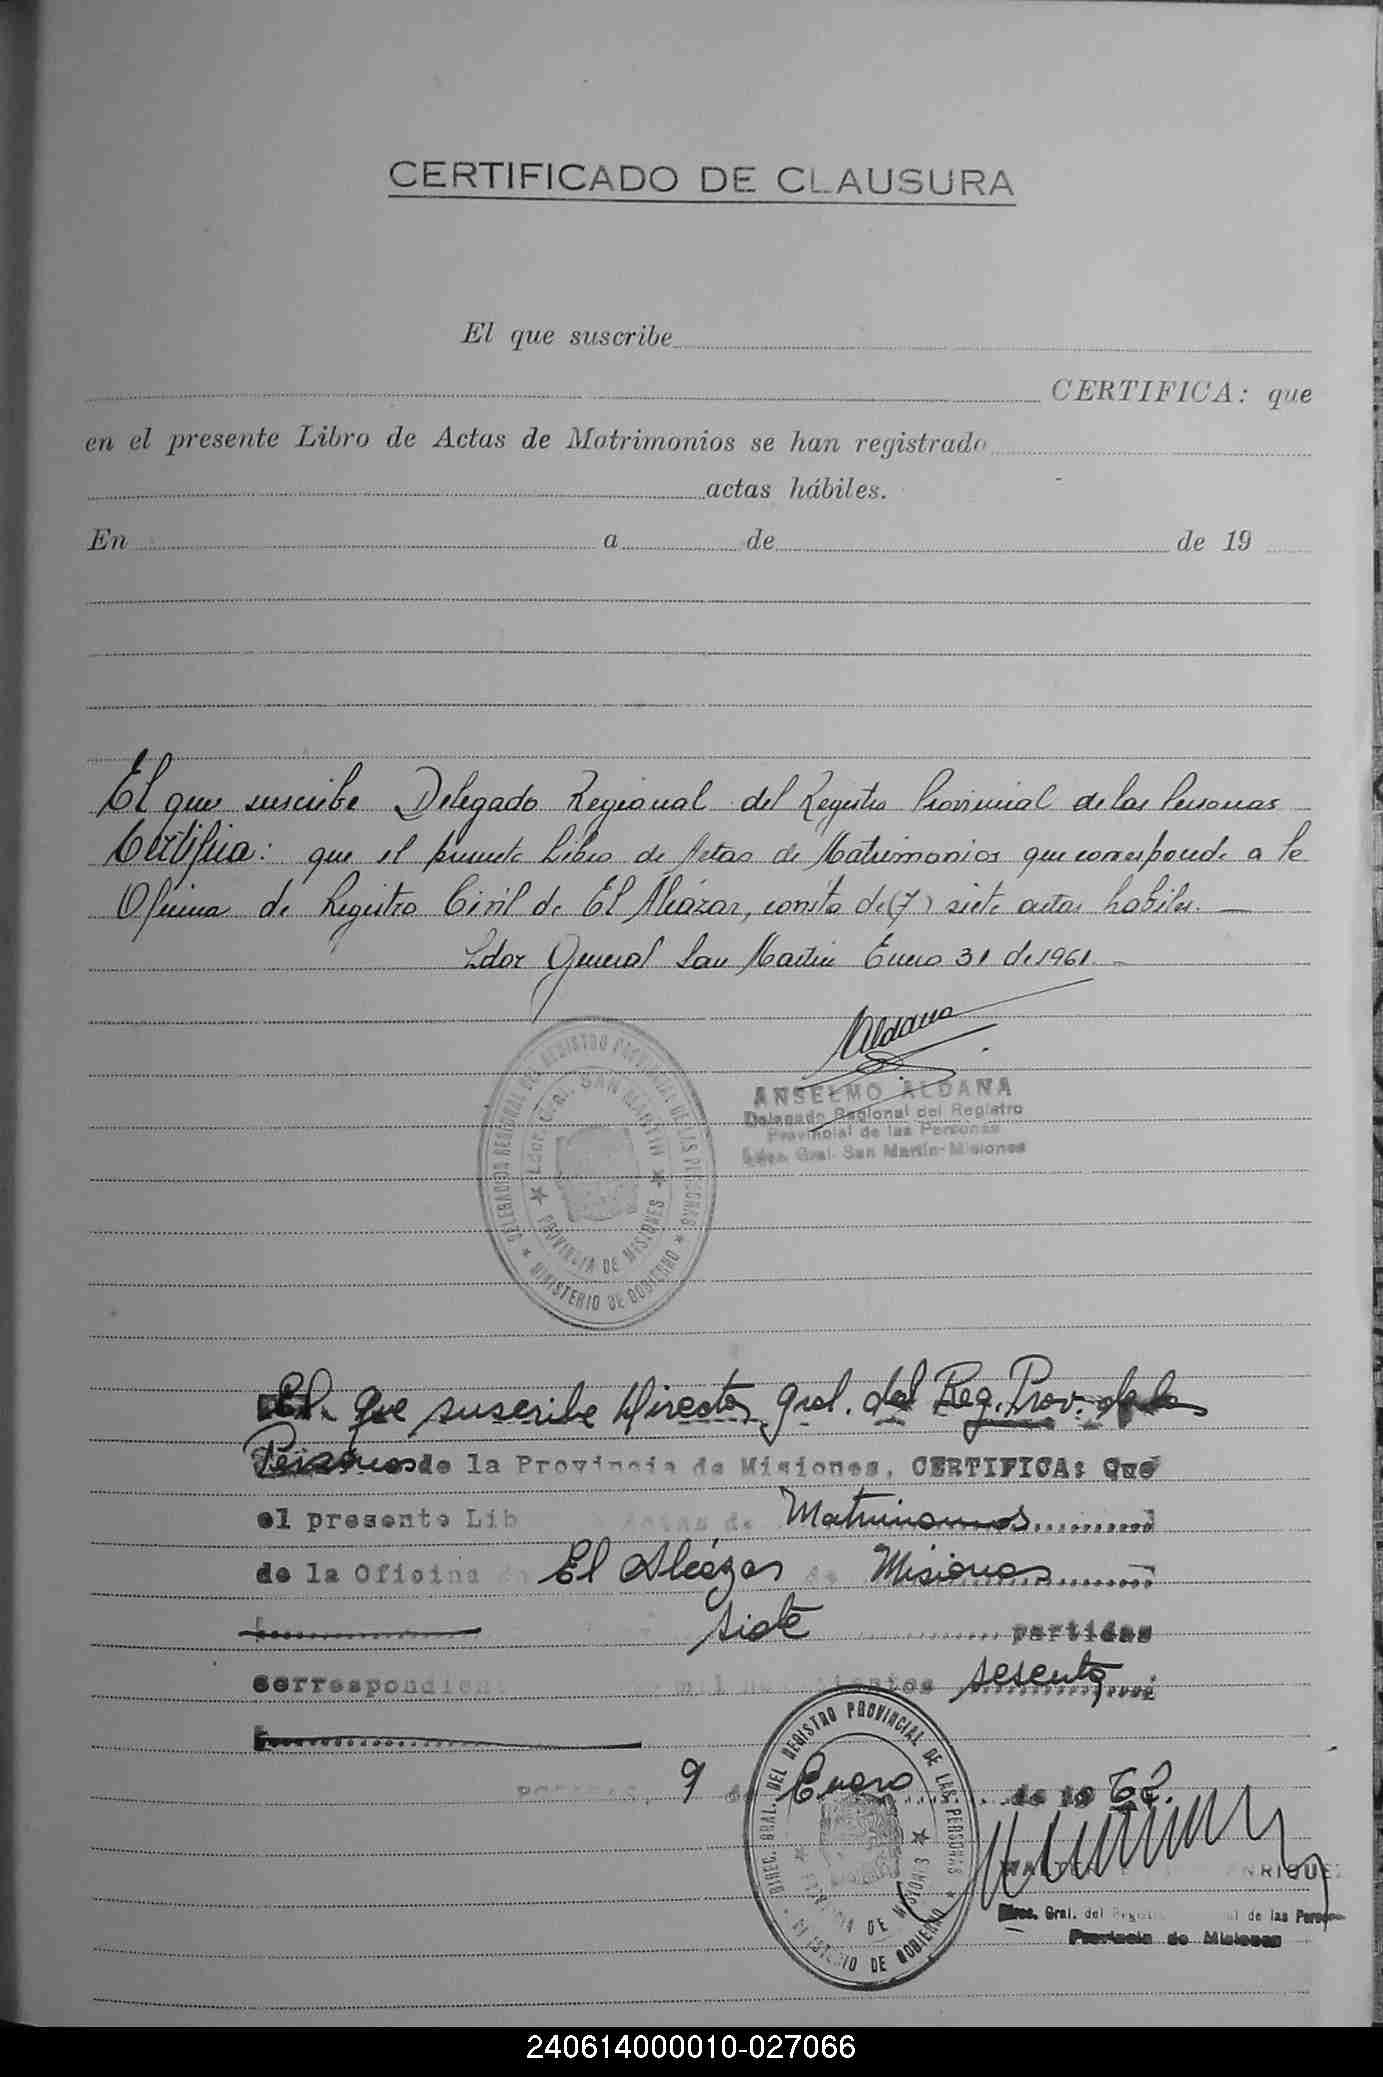 CERTIFICADO DE CLAUSURA
El que suscribe
CERTIFICA: que
en el presente Libro de Actas de Matrimonios se han registrado
actas hábiles.
En a de de 19
El que suscribe Delegado Regional del Registro Provincial de las Personas
Certifica: que el presente Libro de Actas de Matrimonios que corresponde a la
Oficina de Registro Civil de El Alcázar, consta de (7) siete actas habiles.
Ldor General San Martin Enero 31 de 1961.
Aldana
ANSELMO ALDANA
Delegado Regional del Registro
Provincial de las Personas
Ldor. Gral. San Martín-Misiones
DELEGACION REGIONAL DEL REGISTRO PROVINCIAL DE LAS PERSONAS
Ldor. Gral. SAN MARTIN
PROVINCIA DE MISIONES
MINISTERIO DE GOBIERNO
El que suscribe Director Gral. del Reg. Prov. de las
Personas de la Provincia de Misiones, CERTIFICA: Que
el presente Lib Actas de Matrimonios
de la Oficina de El Alcázar de Misiones
siete partidas
correspondient mil novecientos sesenta
POSADAS, 9 de Enero de 19 62.
DIREC. GRAL. DEL REGISTRO PROVINCIAL DE LAS PERSONAS
PROVINCIA DE MISIONES
MINISTERIO DE GOBIERNO
WALTER ENRIQUEZ
Direc. Gral. del Registro de las Personas
Provincia de Misiones
240614000010-027066